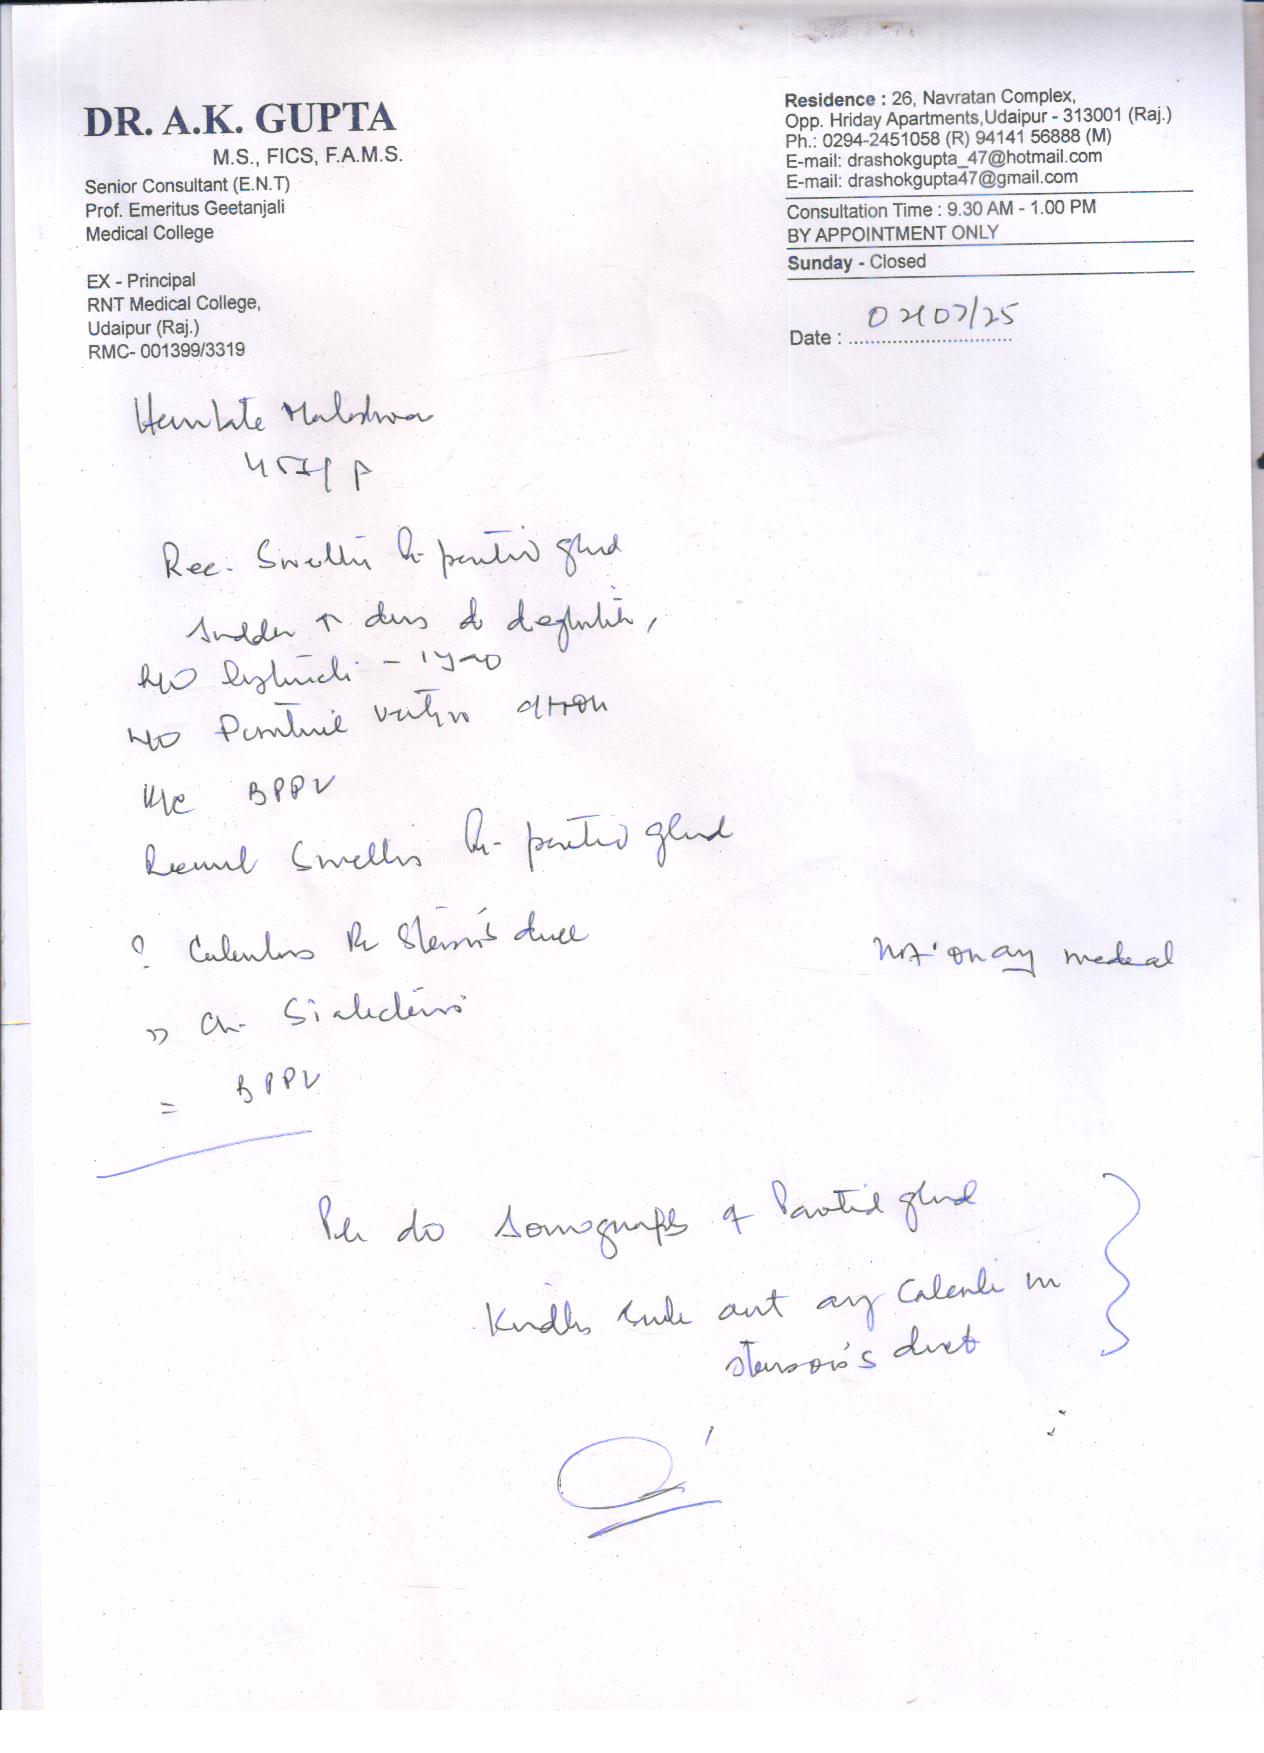 DR. A.K. GUPTA
M.S., FICS, F.A.M.S.
Senior Consultant (E.N.T)
Prof. Emeritus Geetanjali
Medical College
EX - Principal
RNT Medical College,
Udaipur (Raj.)
RMC- 001399/3319
Residence : 26, Navratan Complex,
Opp. Hriday Apartments,Udaipur - 313001 (Raj.)
Ph.: 0294-2451058 (R) 94141 56888 (M)
E-mail: drashokgupta_47@hotmail.com
E-mail: drashokgupta47@gmail.com
Consultation Time : 9.30 AM - 1.00 PM
BY APPOINTMENT ONLY
Sunday - Closed
Date : 02/07/25
Rec. Swelling Rt parotid gland
sudden ↑ during deglutition,
H/O
H/O Positional vertigo
K/C BPPV
Recurrent Swelling Rt parotid gland
? Calculus Rt Stenson's duct
Ch. Sialadenitis
= BPPV
Not on any medical
Pls do sonography of Parotid gland
Kindly rule out any Calculi in
stenson's duct